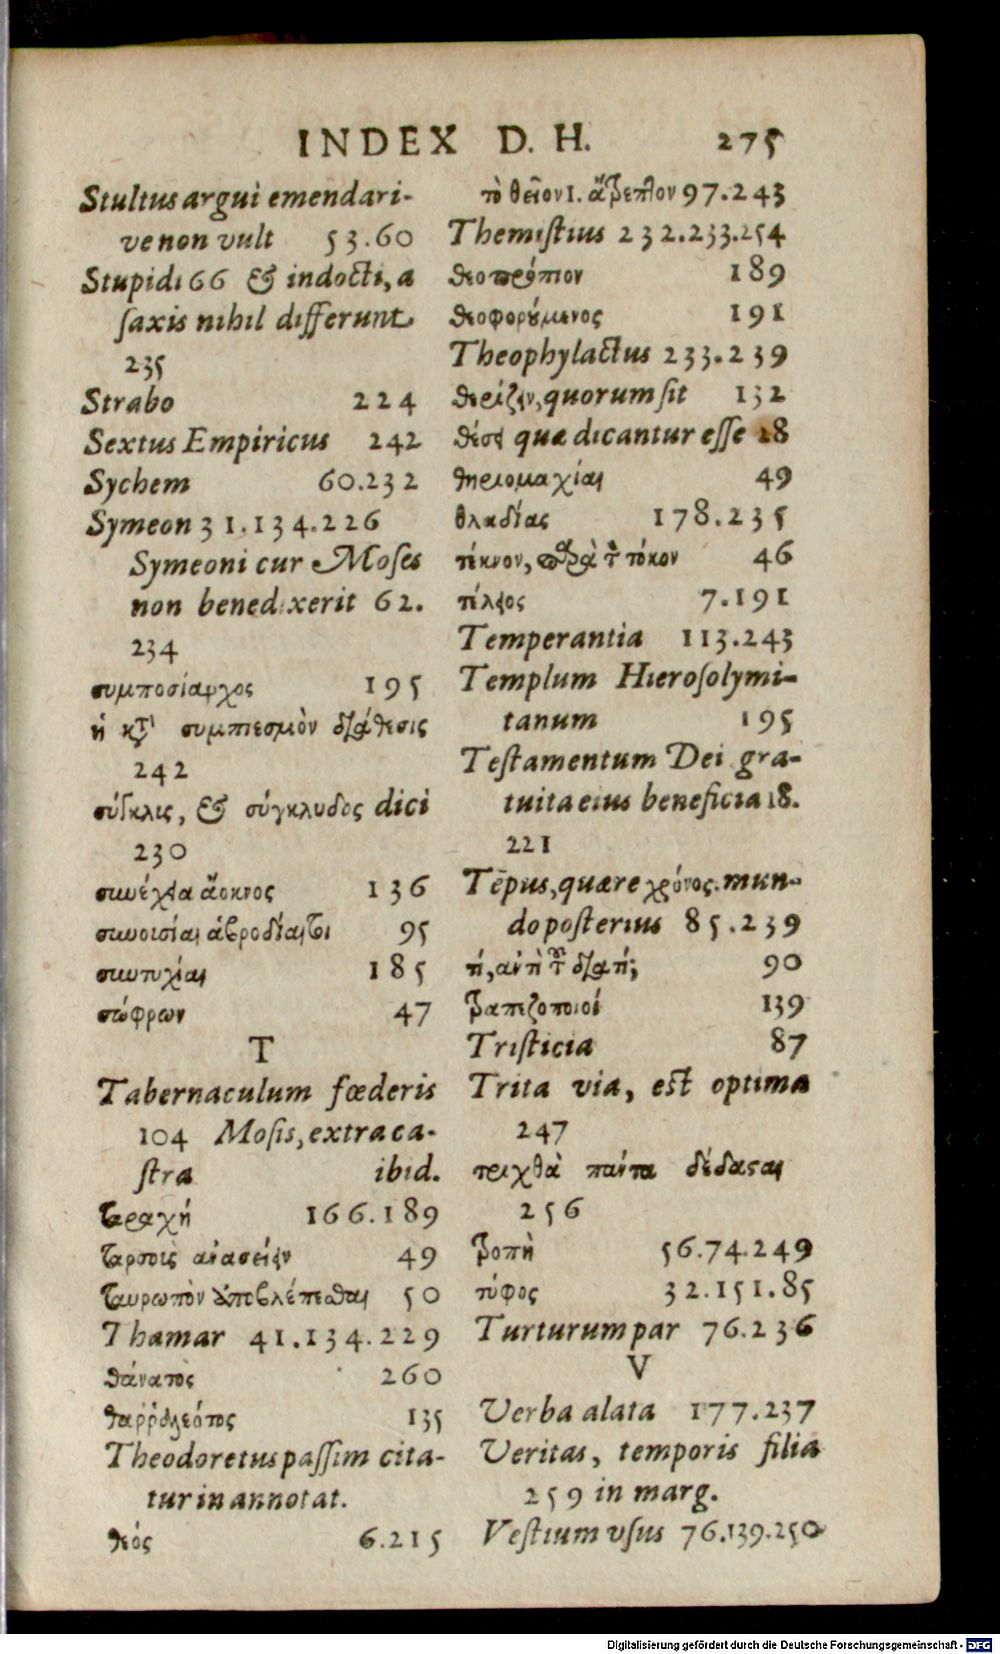 INDEX D. H. 275
Stultus argui emendari-
ve non vult 53.60
Stupidi 66 & indocti, a
ſaxis nihil differunt
235
Strabo 224
Sextus Empiricus 242
Sychem 60.232
Symeon 31.134.226
Symeoni cur Moſes
non benedixerit 62.
234
συμποσίαρχος 195
ἡ κτ̀ συμπιεσμὸν διάθεσις
242
σύγκλις, & σύγκλυδος dici
230
συνέχεια ἄοκνος 136
συνουσίαι ἀβροδίαιτοι 95
συντυχίαι 185
σώφρων 47
T
Tabernaculum fœderis
104 Moſis, extra ca-
ſtra ibid.
ταραχή 166.189
ταρσοῖς ἀνασείειν 49
ταυρωπὸν ὑποβλέπεσθαι 50
Thamar 41.134.229
θάνατος 260
θαῤῥαλεότος 135
Theodoretus paſſim cita-
tur in annotat.
θεός 6.215
τὸ θεῖον ι. ἄτρεπτον 97.243
Themiſtius 232.233.254
θεοπρόπιον 189
θεοφορούμενος 191
Theophylactus 233.239
θερίζειν, quorum ſit 132
θέσει quæ dicantur eſſe 18
θηριομαχίαι 49
θλαδίας 178.235
τέκνον, παρὰ τ̃ τόκον 46
τέλειος 7.191
Temperantia 113.243
Templum Hieroſolymi-
tanum 195
Teſtamentum Dei gra-
tuita eius beneficia 18.
221
Tēpus, quære χρόνος. mun-
do poſterius 85.239
τί, ἀντὶ τ̃ διατί; 90
τραπεζοποιοί 139
Triſticia 87
Trita via, eſt optima
247
τριχθὰ πάντα δέδασαι
256
τροπὴ 56.74.249
τύφος 32.151.85
Turturum par 76.236
V
Verba alata 177.237
Veritas, temporis filia
259 in marg.
Veſtium vſus 76.139.250
Digitalisierung gefördert durch die Deutsche Forschungsgemeinschaft - DFG